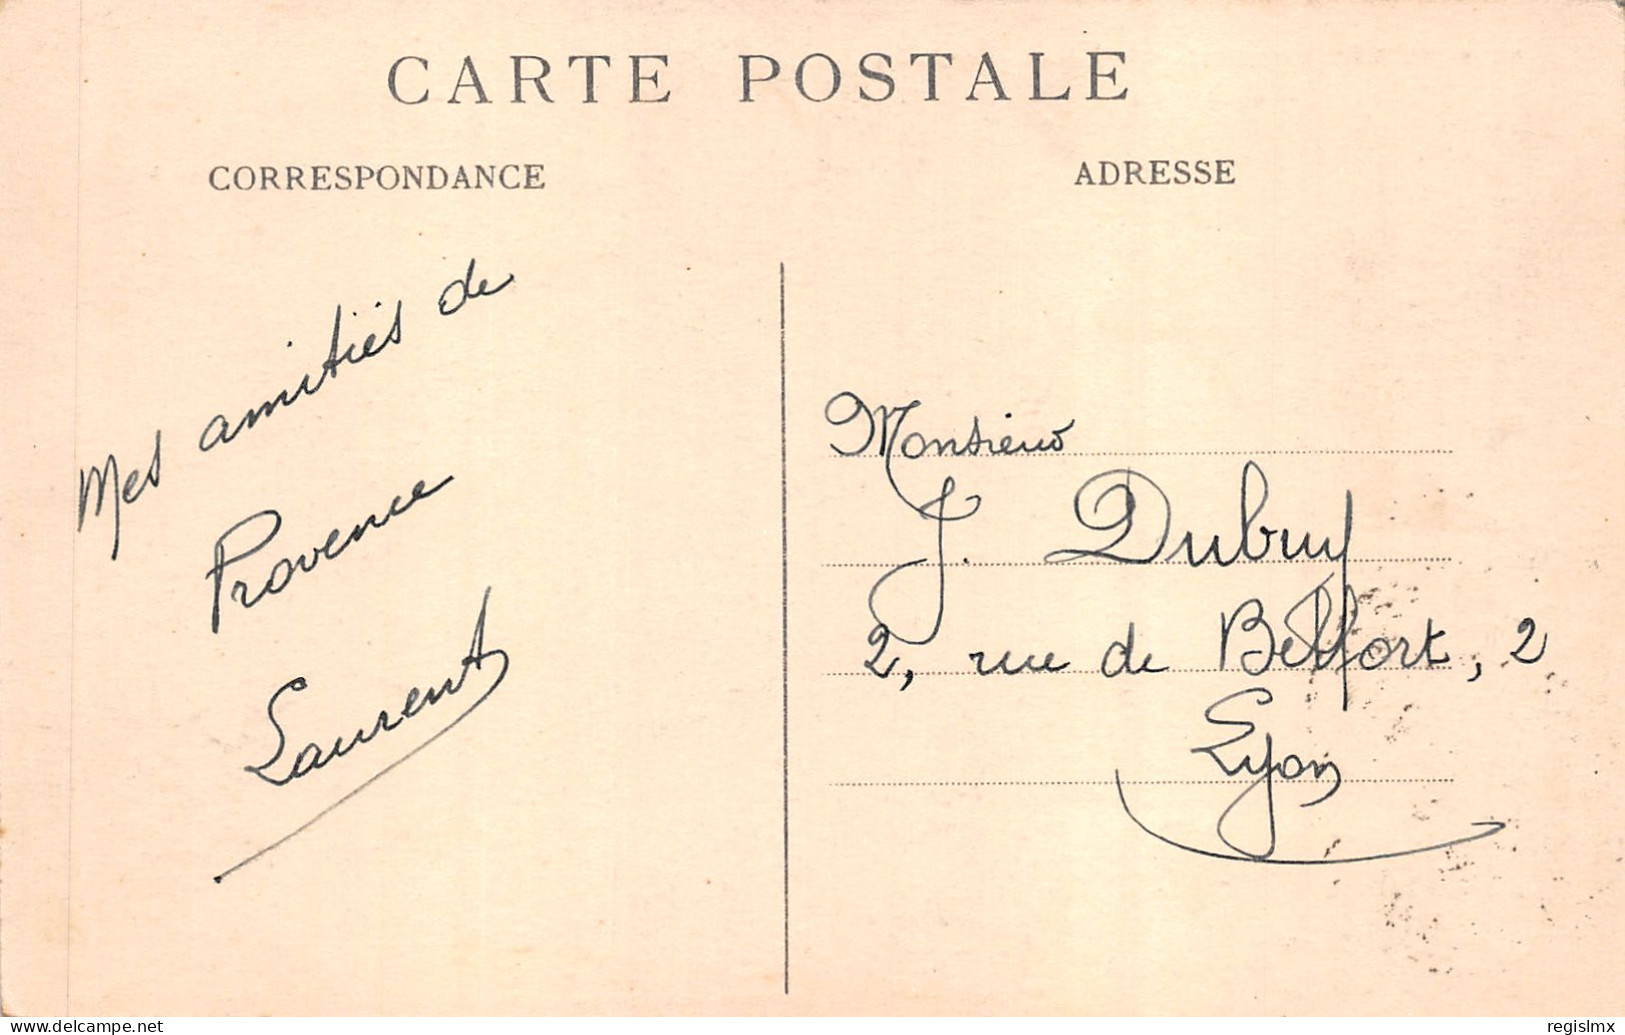 CARTE POSTALE
CORRESPONDANCE
ADRESSE
Mes amitiés de
Provence
Laurent
Monsieur
J. Dubuy
2, rue de Belfort, 2
Lyon
www.delcampe.net
regislmx